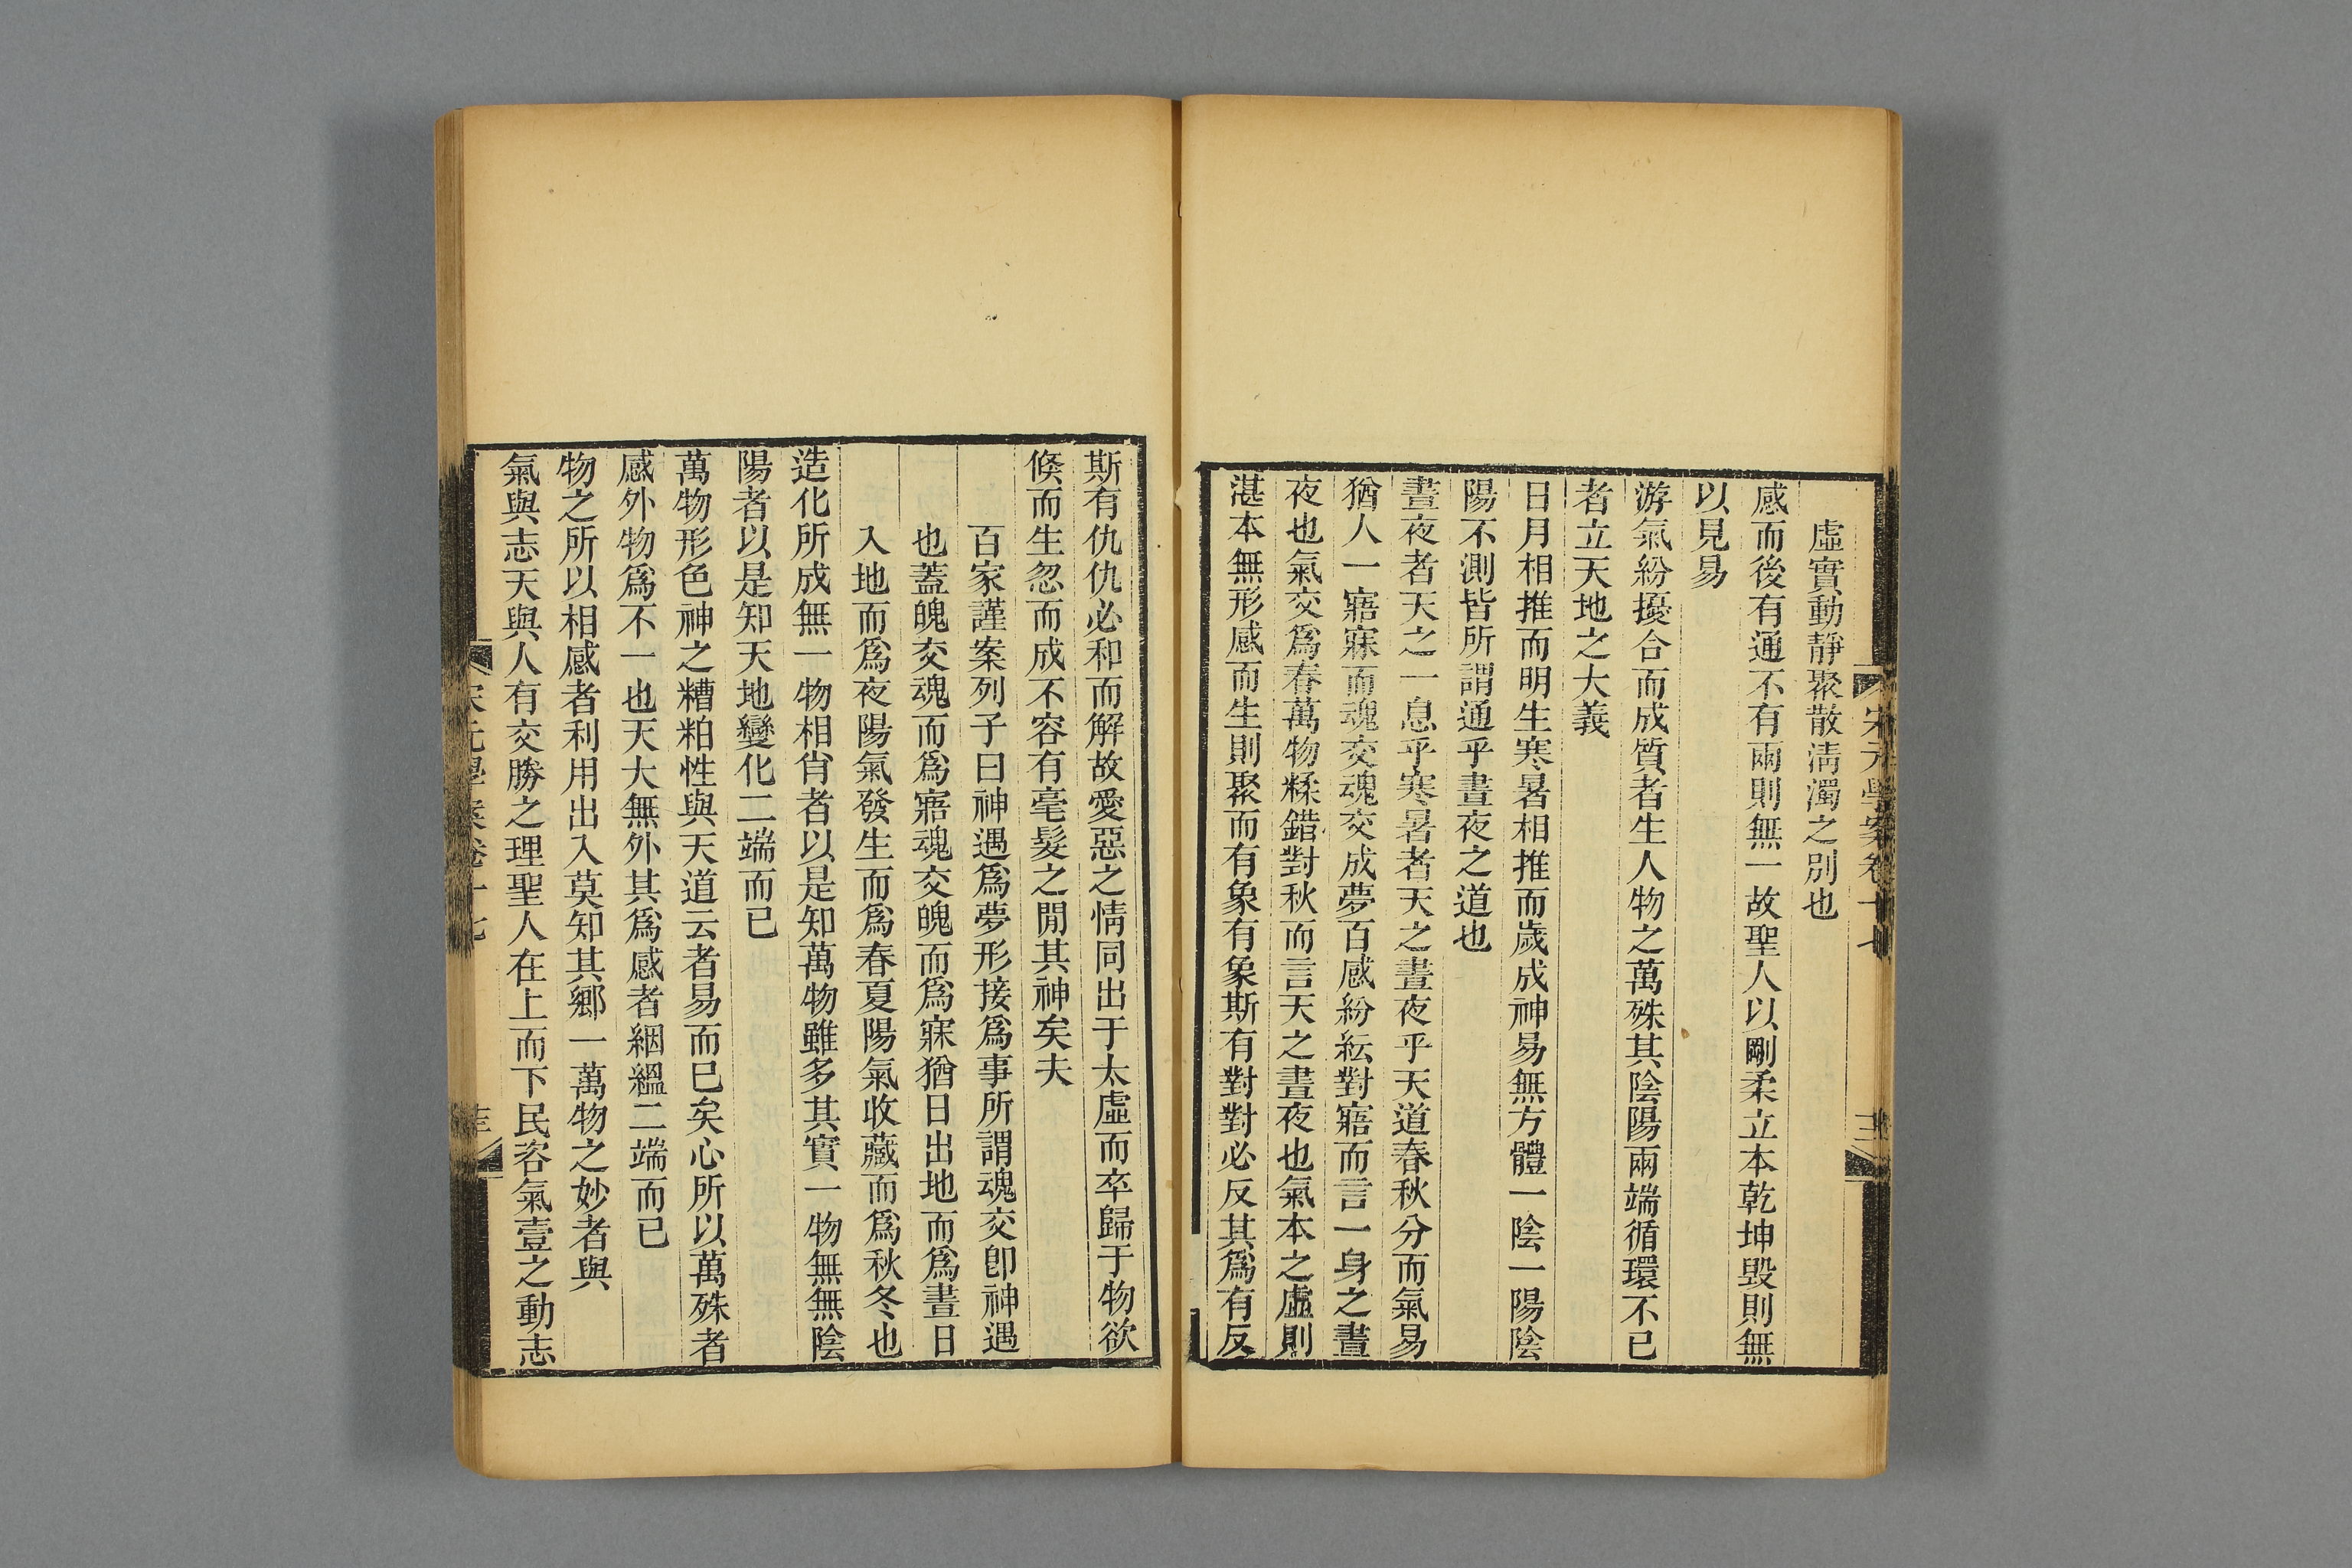 宋元學案卷十七
虛實動靜聚散淸濁之別也
感而後有通不有兩則無一故聖人以剛柔立本乾坤毀則無
以見易
游氣紛擾合而成質者生人物之萬殊其陰陽兩端循環不已
者立天地之大義
日月相推而明生寒暑相推而歲成神易無方體一陰一陽陰
陽不測皆所謂通乎晝夜之道也
晝夜者天之一息乎寒暑者天之晝夜乎天道春秋分而氣易
猶人一寤寐而魂交魂交成夢百感紛紜對寤而言一身之晝
夜也氣交爲春萬物糅錯對秋而言天之晝夜也氣本之虛則
湛本無形感而生則聚而有象有象斯有對對必反其爲有反
斯有仇仇必和而解故愛惡之情同出于太虛而卒歸于物欲
倐而生忽而成不容有毫髮之閒其神矣夫
百家謹案列子曰神遇爲夢形接爲事所謂魂交卽神遇
也蓋魄交魂而爲寤魂交魄而爲寐猶日出地而爲晝日
入地而爲夜陽氣發生而爲春夏陽氣收藏而爲秋冬也
造化所成無一物相肖者以是知萬物雖多其實一物無無陰
陽者以是知天地變化二端而已
萬物形色神之糟粕性與天道云者易而已矣心所以萬殊者
感外物爲不一也天大無外其爲感者絪縕二端而已
物之所以相感者利用出入莫知其鄉一萬物之妙者與
氣與志天與人有交勝之理聖人在上而下民咨氣壹之動志
宋元學案卷十七